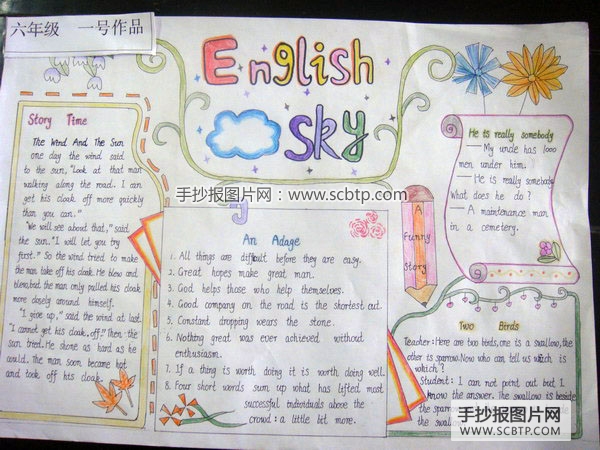 六年级 一号作品
English
Sky
Story Time
The Wind And The Sun
one day the wind said
to the sun, "Look at that man
walking along the road. I can
get his cloak off more quickly
than you can."
"We will see about that," said
the sun. "I will let you try
first." So the wind tried to make
the man take off his cloak. He blew and
blew, but the man only pulled his cloak
more closely around himself.
"I give up," said the wind at last.
"I cannot get his cloak off." Then the
sun tried. He shone as hard as he
could. The man soon became hot
and took off his cloak.
手抄报图片网:www.scbtp.com
An Adage
1. All things are difficult before they are easy.
2. Great hopes make great man.
3. God helps those who help themselves.
4. Good company on the road is the shortest cut.
5. Constant dropping wears the stone.
6. Nothing great was ever achieved without
enthusiasm.
7. If a thing is worth doing it is worth doing well.
8. Four short words sum up what has lifted most
successful individuals above the
crowd: a little bit more.
A
Funny
Story
He is really somebody
— My uncle has 1000
men under him.
— He is really somebody.
What does he do?
— A maintenance man
in a cemetery.
Two Birds
Teacher: Here are two birds, one is a swallow, the
other is sparrow. Now who can tell us which is
which?
Student: I can not point out but I
know the answer. The swallow is beside
the sparrow
the swallow
手抄报图片网
WWW.SCBTP.COM